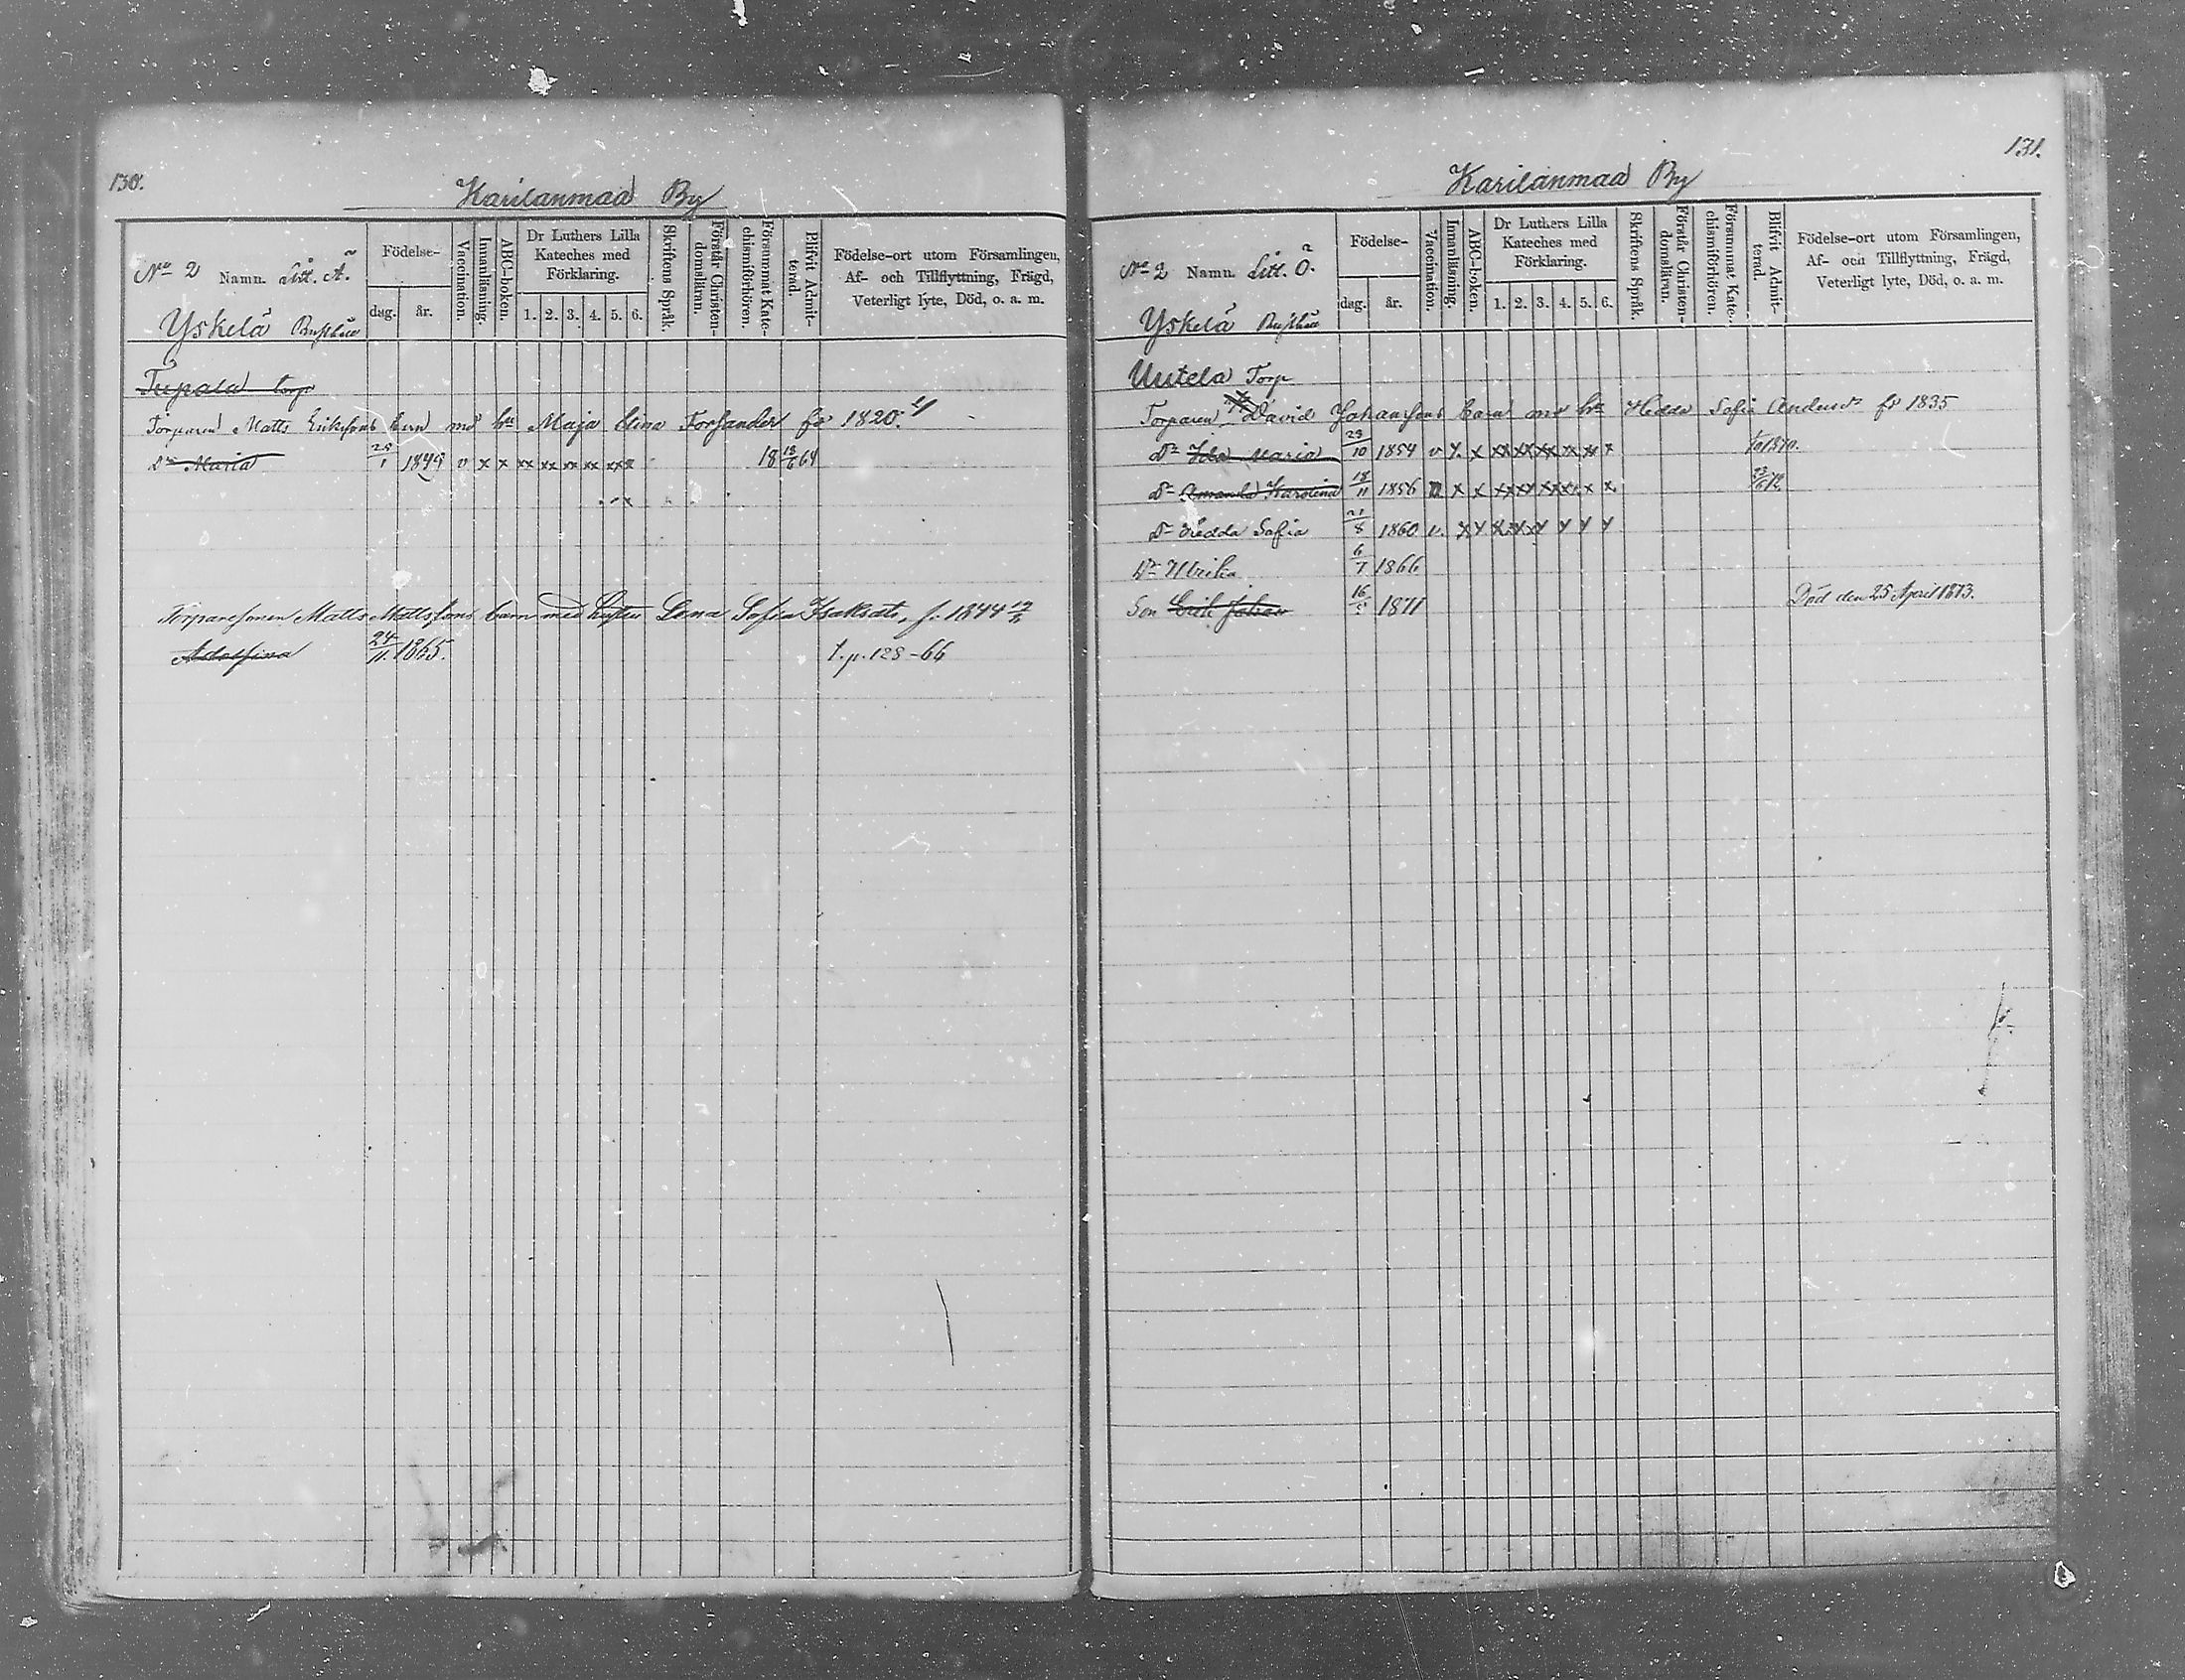 130.
Karilanmaa By
No 2 Namn. Litt. Ã.
Yskelä
Födelse-
dag. år.
Vaccination.
Innanläsning.
ABC-boken.
Dr Luthers Lilla
Kateches med
Förklaring.
1. 2. 3. 4. 5. 6.
Skriftens Språk.
Förstår Christen-
domsläran.
Försummat Kate-
chismiförhören.
Blifvit Admit-
terad.
Födelse-ort utom Församlingen,
Af- och Tillflyttning, Frägd,
Veterligt lyte, Död, o. a. m.
Tupala torp
Torparen Matts Erikssons barn md hu Maja Stina Forsander fö 1820.
Dr Maria 25/1 1849 v x x xx xx xx xx xxx 18 18/6 64
Torparesonen Matts Mattssons barn med hustru Lena Sofia Isaksdt, f. 1844
Adolfina 24/11 1865. t.p. 128-66
131.
Karilanmaa By
No 2 Namn. Litt. Õ.
Yskelä
Födelse-
dag. år.
Vaccination.
Innanläsning.
ABC-boken.
Dr Luthers Lilla
Kateches med
Förklaring.
1. 2. 3. 4. 5. 6.
Skriftens Språk.
Förstår Christen-
domsläran.
Försummat Kate-
chismiförhören.
Blifvit Admit-
terad.
Födelse-ort utom Församlingen,
Af- och Tillflyttning, Frägd,
Veterligt lyte, Död, o. a. m.
Uutela Torp
Torparen David Johanssons barn md hu Hedda Sofia Andersdr fö 1835
Dr Ida Maria 23/10 1854 v x x xx xx xx x xx x 1870.
Dr Amanda Karolina 18/11 1856 x x xx xx xx xx x x
Dr Hedda Sofia 21/8 1860 v. x x x x x x x x
Dr Ulrika 6/7 1866
Son Erik Johan 16 1871 Död den 25 April 1873.